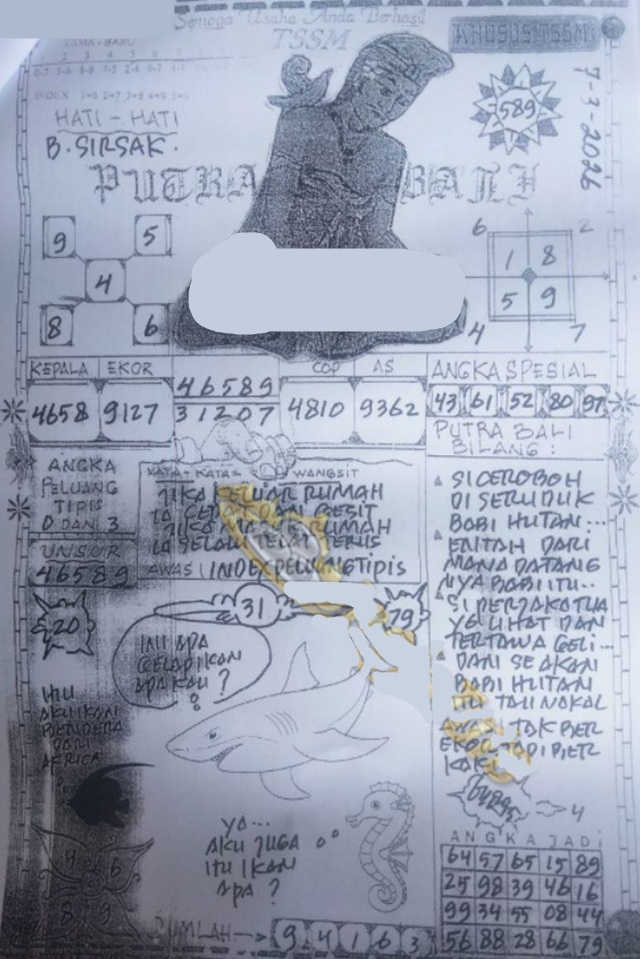 Semoga Usaha Anda Berhasil
TSSM
LAMA - BARU
HATI - HATI
B. SIRSAK.
PUTRA BALI
KHUSUS TSSM
589
7-3-2026
9 5
4
8 6
6 2
1 8
5 9
4 7
KEPALA EKOR
4658 9127
46589
31207
COP AS
4810 9362
ANGKA SPESIAL
43 61 52 80 97
PUTRA BALI
BILANG :
ANGKA
PELUANG
TIPIS
0 DAN 3
UNSUR
46589
KATA - KATA WANGSIT
JIKA KELUAR RUMAH
IA CEPAT DAN GESIT
JIKA RUMAH
IA SELALU TERUS
AWAS INDEX PELUANG TIPIS
SI CEROBOH
DI SERUDUK
BABI HUTAN...
ENTAH DARI
MANA DATANG
NYA BABI ITU..
SI PERJAKA TUA
YG LIHAT DAN
TERTAWA GELI...
DAN SEAKAN
BABI HUTAN
ITU TAU NAKAL
AWAS TAK BER
EKOR TAPI BER
KAKI
20
31
79
INI APA
GELAP IKAN
APA KAU ?
ITU
AKU IKAN
BENDERA
DARI
AFRICA
YA...
AKU JUGA
ITU IKAN
APA ?
4
4 6
8 9
JUMLAH → 9 4 1 6 3
ANGKA JADI
64 57 65 15 89
25 98 39 46 16
99 34 55 08 44
56 88 28 66 79